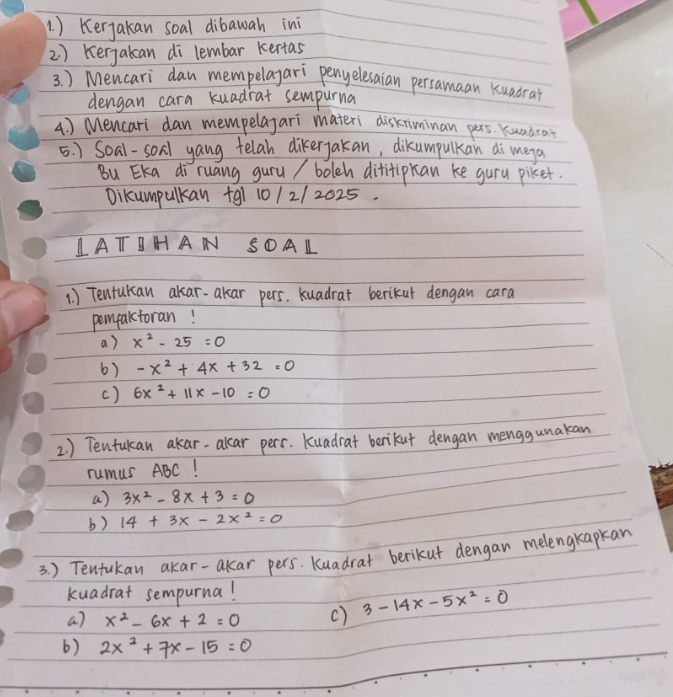 1.) Kerjakan soal dibawah ini
2.) Kerjakan di lembar kertas
3.) Mencari dan mempelajari penyelesaian persamaan kuadrat
dengan cara kuadrat sempurna
4.) Mencari dan mempelajari materi diskriminan pers. kuadrat
5.) Soal-soal yang telah dikerjakan, dikumpulkan di meja
Bu Eka di ruang guru / boleh dititipkan ke guru piket.
Dikumpulkan tgl 10/2/2025.
LATIHAN SOAL
1.) Tentukan akar-akar pers. kuadrat berikut dengan cara
pemfaktoran !
a) x² - 25 = 0
b) -x² + 4x + 32 = 0
c) 6x² + 11x - 10 = 0
2.) Tentukan akar-akar pers. kuadrat berikut dengan menggunakan
rumus ABC !
a) 3x² - 8x + 3 = 0
b) 14 + 3x - 2x² = 0
3.) Tentukan akar-akar pers. kuadrat berikut dengan melengkapkan
kuadrat sempurna!
a) x² - 6x + 2 = 0
b) 2x² + 7x - 15 = 0
c) 3 - 14x - 5x² = 0